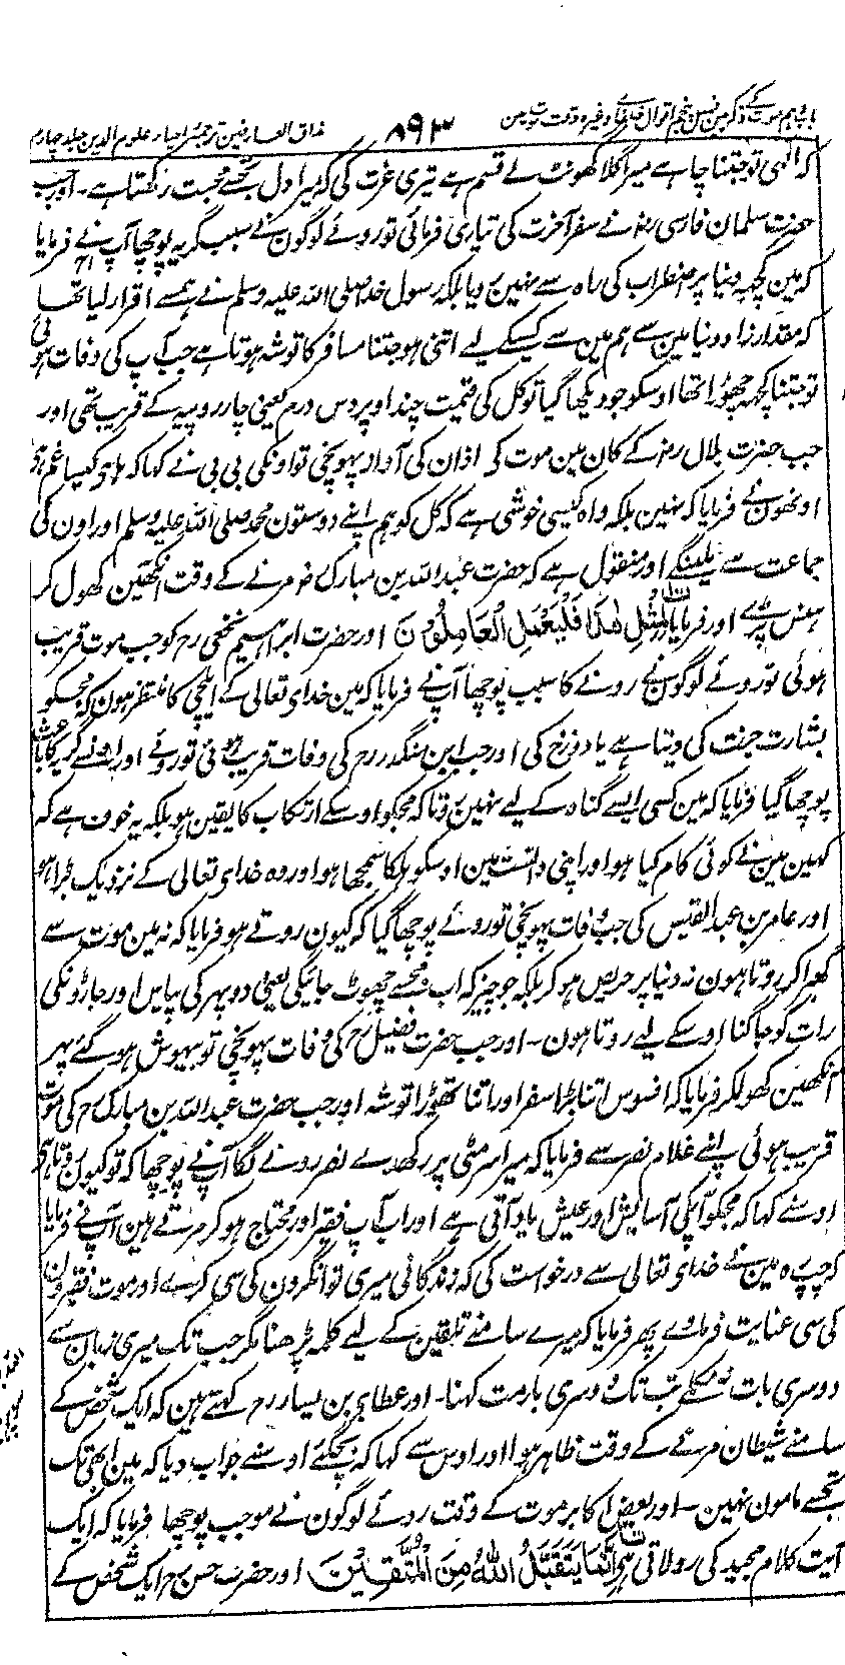 باب چہارم موت کے ذکر مین فصل پنجم اقوال خلفا وغیرہ وقت موت مین ۸۹۳ مذاق العارفین ترجمہ احیاء علوم الدین جلد چہارم
کہ الٰہی تو جتنا چاہے میرا گلا گھونٹ لے قسم ہے تیری عزت کی کہ میرا دل تجھسے محبت رکھتا ہے ۔ اور جب
حضرت سلمان فارسی رض نے سفر آخرت کی تیاری فرمائی تو روئے لوگون نے سبب گریہ پوچھا آپ نے فرمایا
کہ مین کچھ دنیا پر اضطراب کی راہ سے نہین رویا بلکہ رسول خدا صلی اللہ علیہ وسلم نے ہمسے اقرار لیا تھا
کہ مقدار زاد دنیا مین سے ہم مین سے کسیکے لیے اتنی ہو جتنا مسافر کا توشہ ہوتا ہے جب آپ کی وفات ہوئی
تو جتنا کچھ چھوڑا تھا اوسکو جو دیکھا گیا تو کل کی قیمت چند اوپر دس درم یعنی چار روپیہ کے قریب تھی اور
جب حضرت بلال رض کے کان مین موت کی اذان کی آواز پہونچی تو اونکی بی بی نے کہا کہ ہای کیسا غم ہے
اونھون نے فرمایا کہ نہین بلکہ واہ کیسی خوشی ہے کہ کل کو ہم اپنے دوستون محمد صلی اللہ علیہ وسلم اور اون کی
جماعت سے ملینگے اور منقول ہے کہ حضرت عبداللہ بن مبارک رح مرنے کے وقت آنکھین کھول کر
ہنس پڑے اور فرمایا لِمِثْلِ هٰذَا فَلْيَعْمَلِ الْعَامِلُوْنَ اور حضرت ابراہیم نخعی رح کو جب موت قریب
ہوئی تو روئے لوگون نے رونے کا سبب پوچھا آپ نے فرمایا کہ مین خدای تعالی کے ایلچی کا منتظر ہون کہ مجکو
بشارت جنت کی دیتا ہے یا دوزخ کی اور جب ابن منکدر رح کی وفات قریب ہوئی تو روئے اور اونسے گریہ کا باعث
پوچھا گیا فرمایا کہ مین کسی ایسے گناہ کے لیے نہین روتا کہ مجکو اوسکے ارتکاب کا یقین ہو بلکہ یہ خوف ہے کہ
کہین مین نے کوئی کام کیا ہو اور اپنی دانست مین اوسکو ہلکا سمجھا ہو اور وہ خدای تعالی کے نزدیک بڑا ہو
اور عامر بن عبدالقیس کی جب وفات پہونچی تو روئے پوچھا گیا کہ کیون روتے ہو فرمایا کہ نہ مین موت سے
گھبرا کر روتا ہون نہ دنیا پر حریص ہو کر بلکہ جو چیز کہ اب مجھسے چھوٹ جائیگی یعنی دوپہر کی پیاس اور جاڑونکی
رات کو جاگنا اوسکے لیے روتا ہون ۔ اور جب حضرت فضیل رح کی وفات پہونچی تو بیہوش ہو گئے پھر
آنکھین کھولکر فرمایا کہ افسوس اتنا بڑا سفر اور اتنا تھوڑا توشہ اور جب حضرت عبداللہ بن مبارک رح کی موت
قریب ہوئی اپنے غلام نصر سے فرمایا کہ میرا سر مٹی پر رکھدے نصر رونے لگا آپ نے پوچھا کہ تو کیون روتا ہے
اوسنے کہا کہ مجکو آپکی آسایش اور عیش یاد آتی ہے اور اب آپ فقیر اور محتاج ہو کر مرتے ہین آپ نے فرمایا
کہ چپ رہ مین نے خدای تعالی سے درخواست کی کہ زندگانی میری توانگرون کی سی کرے اور موت فقیرون
کی سی عنایت فرماوے پھر فرمایا کہ میرے سامنے تلقین کے لیے کلمہ پڑھنا مگر جب تک میری زبان سے
دوسری بات نہ نکلے تب تک دوسری بار مت کہنا ۔ اور عطا بن یسار رح کہتے ہین کہ ایک شخص کے
سامنے شیطان مرنے کے وقت ظاہر ہوا اور اوس سے کہا کہ بچگئے اوسنے جواب دیا کہ مین ابھی تک
تجھسے مامون نہین ۔ اور بعض اکابر موت کے وقت روئے لوگون نے موجب پوچھا فرمایا کہ ایک
آیت کلام مجید کی رولاتی ہے اِنَّمَا يَتَقَبَّلُ اللّٰهُ مِنَ الْمُتَّقِيْنَ اور حضرت حسن رح ایک شخص کے